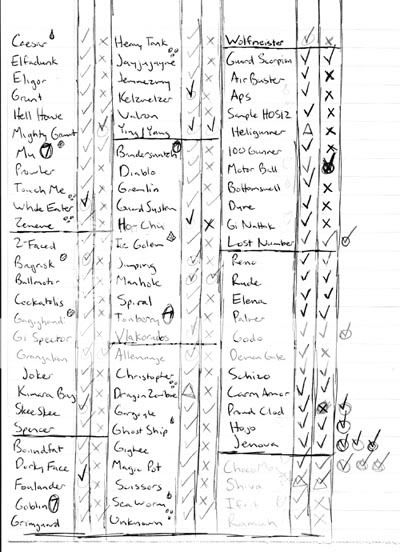 Caesar
Elfadunk
Eligor
Grunt
Hell House
Mighty Grunt
Mu 7
Prowler
Touch Me
Whole Eater
Zenene
2-Faced
Bagrisk
Bullmotor
Cockatolis
Gagighandi
Gi Spector
Grangalan
Joker
Kimara Bug
Skee Skee
Spencer
Boundfat
Dorky Face
Foulander
Goblin 7
Grimguard
Heavy Tank
Jayjujayme
Jemnezmy
Kelzmelzer
Vulron
Ying/Yang
Bandersnatch
Diablo
Gremlin
Guard System
Ho-Chu
Ice Golem
Jumping
Manhole
Spiral
Tonberry
Vlakorados
Allemagne
Christopher
Dragon Zombie
Gargoyle
Ghost Ship
Gighee
Magic Pot
Scissors
Sea Worm
Unknown
Wolfmeister
Guard Scorpion
Air Buster
Aps
Sample HO512
Heligunner
100 Gunner
Motor Ball
Bottomswell
Dyne
Gi Nattak
Lost Number
Reno
Rude
Elena
Palmer
Godo
Demon Gate
Schizo
Carry Armor
Proud Clod
Hojo
Jenova
Shiva
Ifrit
Ramuh